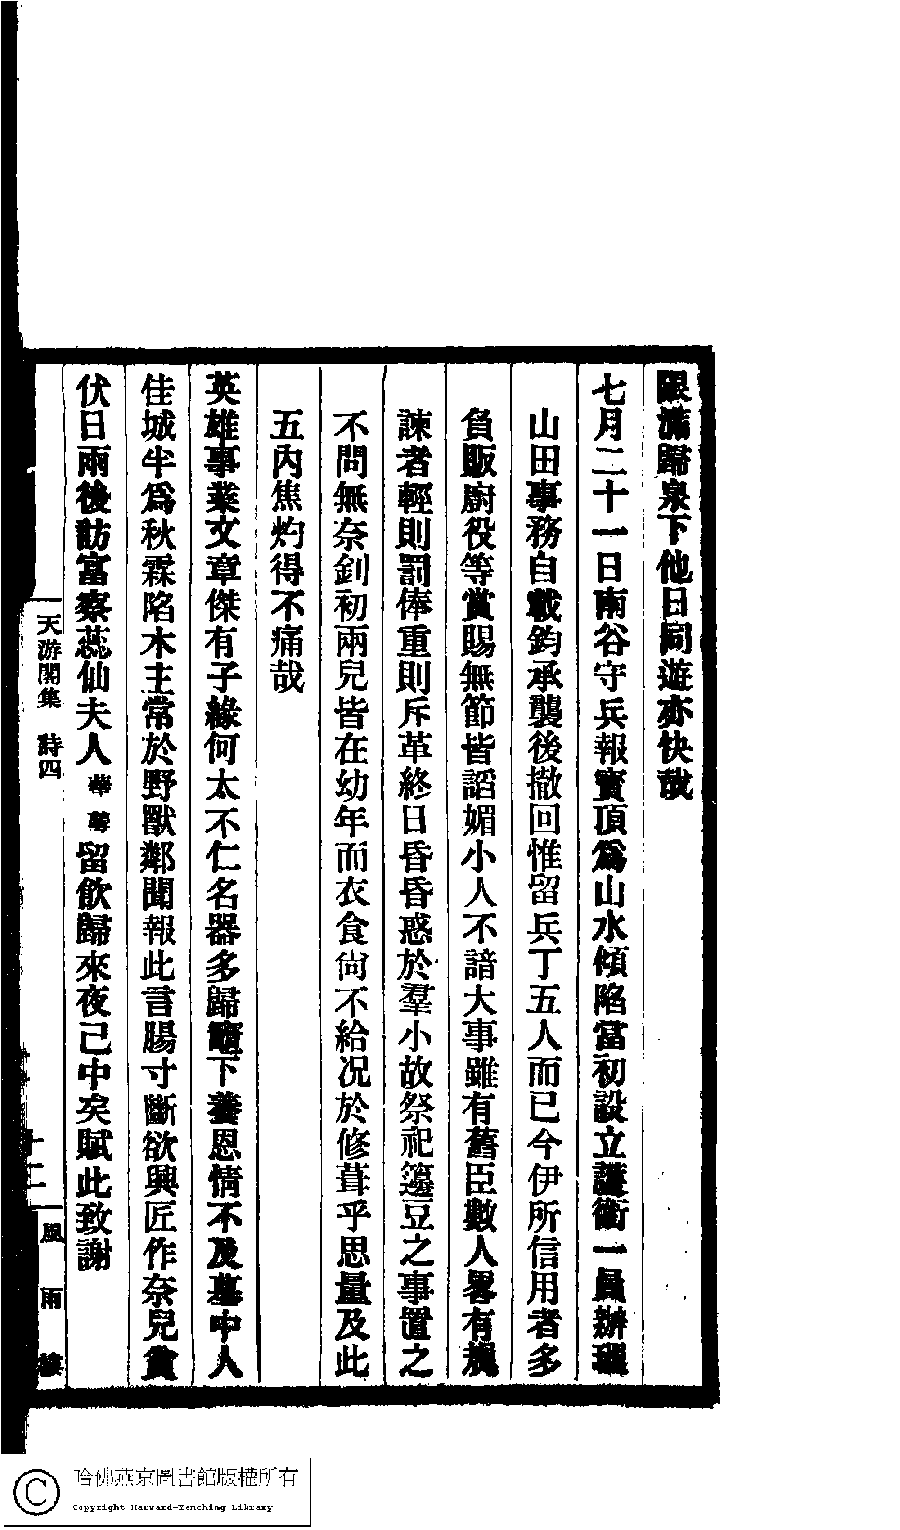 限滿歸泉下他日同遊亦快哉
七月二十一日南谷守兵報寶頂爲山水傾陷當初設立護衛一員辦理
山田事務自載鈞承襲後撤回惟留兵丁五人而已今伊所信用者多
負販廚役等賞賜無節皆諂媚小人不諳大事雖有舊臣數人畧有規
諫者輕則罰俸重則斥革終日昏昏惑於羣小故祭祀籩豆之事置之
不問無奈釗初兩兒皆在幼年而衣食尙不給况於修葺乎思量及此
五內焦灼得不痛哉
英雄事業文章傑有子緣何太不仁名器多歸竈下養恩情不及墓中人
佳城半爲秋霖陷木主常於野獸鄰聞報此言腸寸斷欲興匠作奈兒貧
伏日雨後訪富察蕊仙夫人華萼留飲歸來夜已中矣賦此致謝
天游閣集 詩四
十二
風雨樓
哈佛燕京圖書館版權所有
Copyright Harvard-Yenching Library